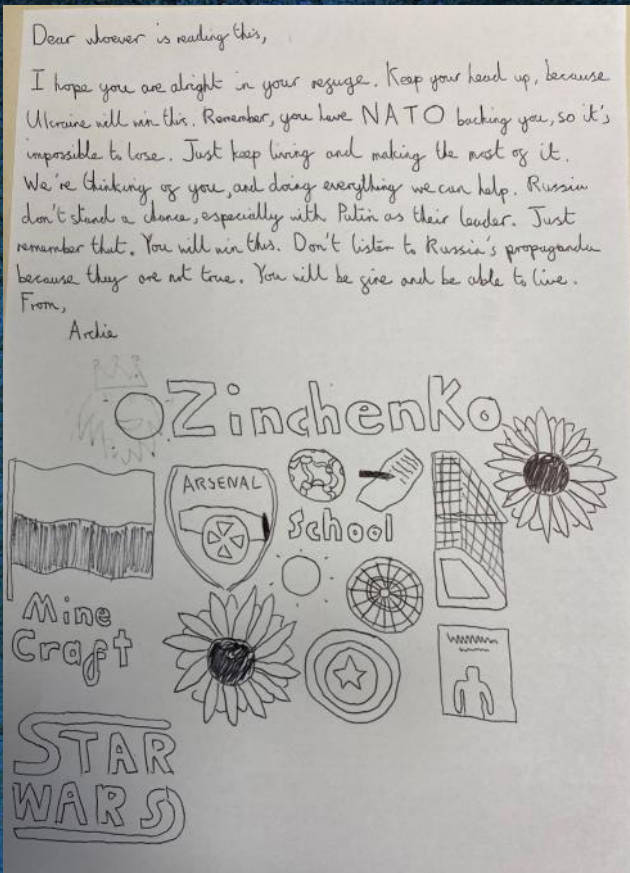 Dear whoever is reading this,
I hope you are alright in your refuge. Keep your head up, because
Ukraine will win this. Remember, you have NATO backing you, so it's
impossible to lose. Just keep living and making the most of it.
We're thinking of you, and doing everything we can help. Russia
don't stand a chance, especially with Putin as their leader. Just
remember that. You will win this. Don't listen to Russia's propaganda
because they are not true. You will be fine and be able to live.
From,
Archie
Zinchenko
ARSENAL
School
Mine
Craft
STAR
WARS